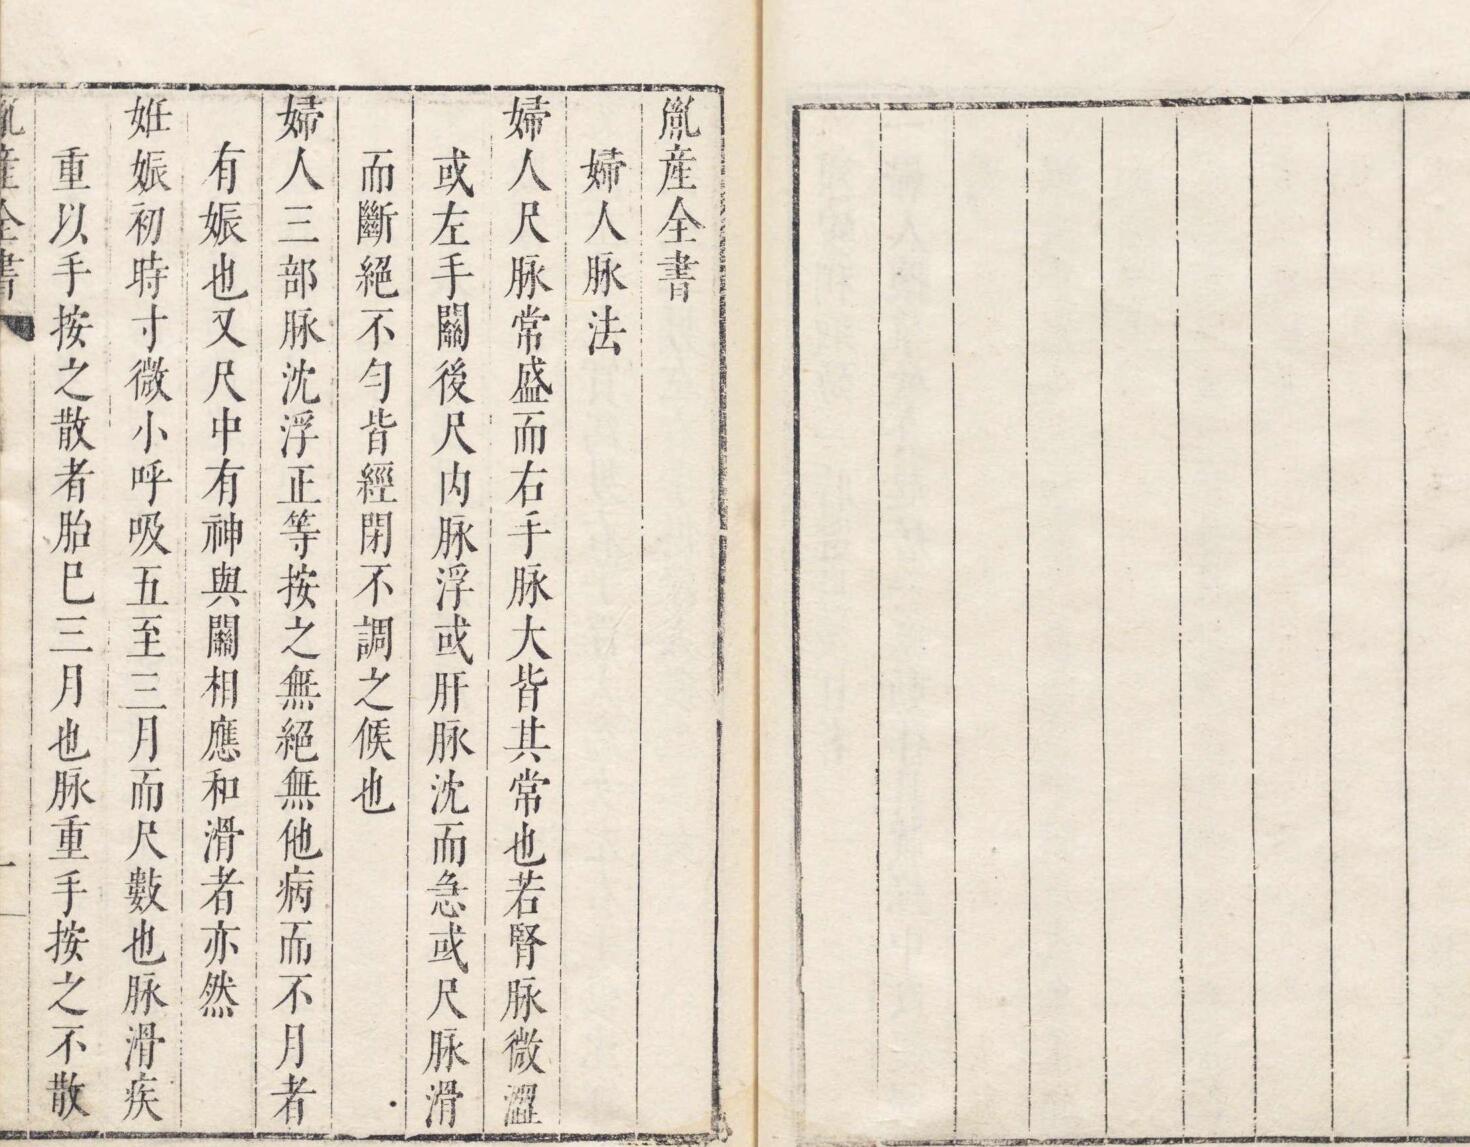 胤産全書
婦人脉法
婦人尺脉常盛而右手脉大皆其常也若腎脉微澀
或左手關後尺内脉浮或肝脉沈而急或尺脉滑
而斷絕不勻皆經閉不調之候也
婦人三部脉沈浮正等按之無絕無他病而不月者
有娠也又尺中有神與關相應和滑者亦然
姙娠初時寸微小呼吸五至三月而尺數也脉滑疾
重以手按之散者胎已三月也脉重手按之不散
胤産全書
一